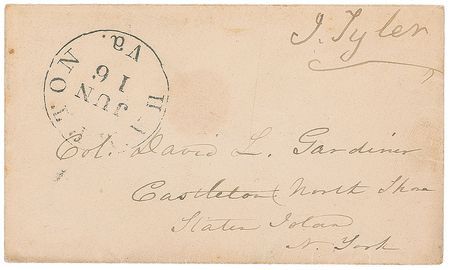 J. Tyler
TON Va.
JUN
16
Col. David L. Gardiner
Castleton North Shore
Staten Island
N. York